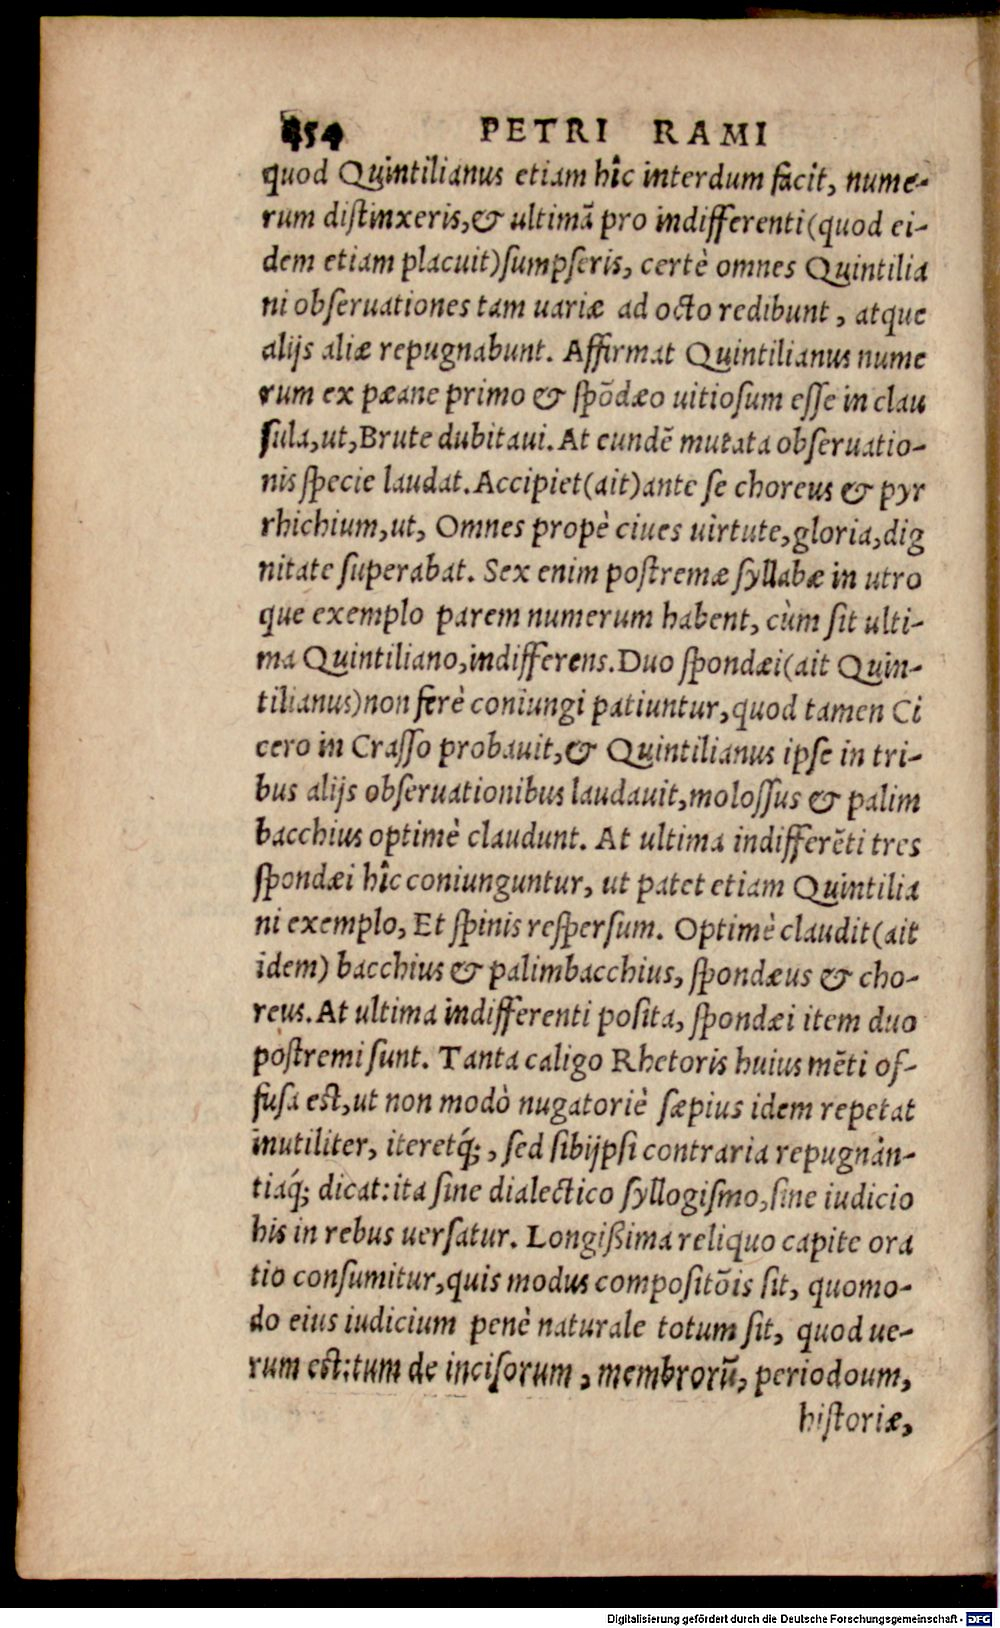 454 PETRI RAMI
quod Quintilianus etiam hîc interdum facit, nume-
rum distinxeris, & ultimā pro indifferenti (quod ei-
dem etiam placuit) sumpseris, certè omnes Quintilia
ni obseruationes tam uariæ ad octo redibunt, atque
alijs aliæ repugnabunt. Affirmat Quintilianus nume
rum ex pæane primo & spōdæo uitiosum esse in clau
sula, ut, Brute dubitaui. At eundē mutata obseruatio-
nis specie laudat. Accipiet (ait) ante se choreus & pyr
rhichium, ut, Omnes propè ciues uirtute, gloria, dig
nitate superabat. Sex enim postremæ syllabæ in utro
que exemplo parem numerum habent, cùm sit ulti-
ma Quintiliano, indifferens. Duo spondæi (ait Quin-
tilianus) non ferè coniungi patiuntur, quod tamen Ci
cero in Crasso probauit, & Quintilianus ipse in tri-
bus alijs obseruationibus laudauit, molossus & palim
bacchius optimè claudunt. At ultima indifferēti tres
spondæi hîc coniunguntur, ut patet etiam Quintilia
ni exemplo, Et spinis respersum. Optimè claudit (ait
idem) bacchius & palimbacchius, spondæus & cho-
reus. At ultima indifferenti posita, spondæi item duo
postremi sunt. Tanta caligo Rhetoris huius mēti of-
fusa est, ut non modò nugatoriè sæpius idem repetat
inutiliter, iteretq́;, sed sibijpsi contraria repugnàn-
tiaq́; dicat: ita sine dialectico syllogismo, sine iudicio
his in rebus uersatur. Longißima reliquo capite ora
tio consumitur, quis modus compositōis sit, quomo-
do eius iudicium penè naturale totum sit, quod ue-
rum est: tum de incisorum, membrorū, periodoum,
historiæ,
Digitalisierung gefördert durch die Deutsche Forschungsgemeinschaft - DFG